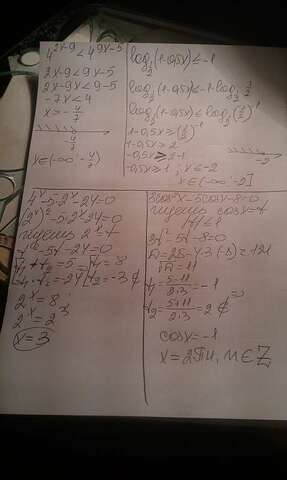 4^{2x-9} < 4^{9x-5}
2x-9<9x-5
2x-9x<9-5
-7x<4
x=-4/7
4/7
x∈(-∞; -4/7)
log_{1/2}(1-0,5x)≤-1
log_{1/2}(1-0,5x)≤-1·log_{1/2} 1/2
log_{1/2}(1-0,5x)≤log_{1/2}(1/2)^{-1}
1-0,5x≥(1/2)^{-1}
1-0,5x≥2
-0,5x≥2-1
-0,5x≥1; x≤-2
-2
x∈(-∞;-2]
4^x-5·2^x-24=0
(2^x)^2-5·2^x-24=0
пусть 2^x=t
t^2-5t-24=0
t1+t2=5 t1=8
t1·t2=-24 t2=-3 ∉
2^x=8
2^x=2^3
x=3
3cos²x-5cosx-8=0
пусть cosx=t
|t|≤1
3t²-5t-8=0
D=25-4·3·(-8)=121
√D=11
t1=5-11/2·3=-1
t2=5+11/2·3=2 ∉ =>
cosx=-1
x=2πn, n∈Z